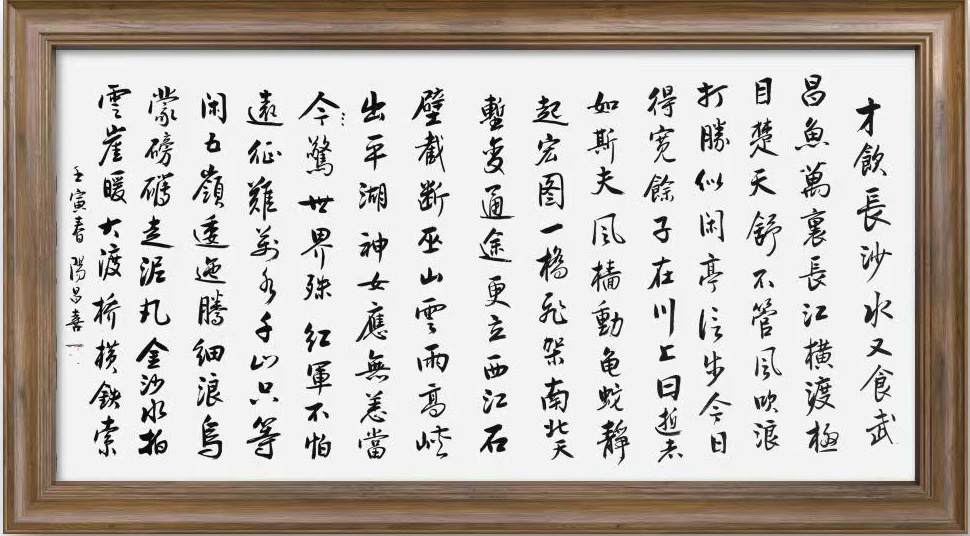 才飲長沙水又食武
昌魚萬裏長江橫渡極
目楚天舒不管风吹浪
打勝似闲亭信步今日
得宽餘子在川上曰逝者
如斯夫风檣動龟蛇靜
起宏图一橋飛架南北天
塹变通途更立西江石
壁截断巫山雲雨高峡
出平湖神女應無恙當
今驚世界殊 红軍不怕
遠征難萬水千山只等
闲五嶺逶迤腾細浪烏
蒙磅礴走泥丸金沙水拍
雲崖暖大渡桥横鉄索
壬寅春 陽昌喜